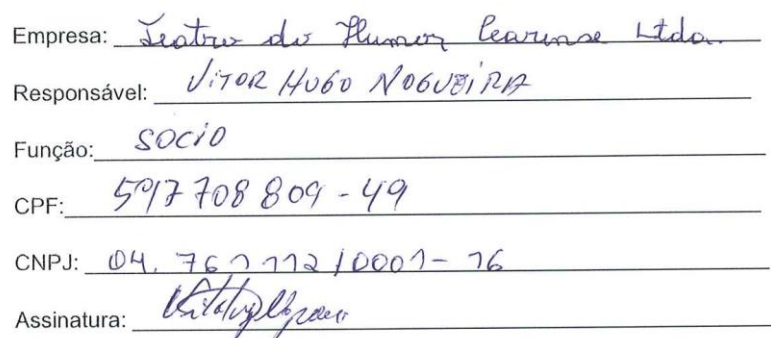 Empresa: Teatro do Humor Cearense Ltda.
Responsável: VITOR HUGO NOGUEIRA
Função: SOCIO
CPF: 597 708 809 - 49
CNPJ: 04. 761 112 / 0001 - 16
Assinatura: